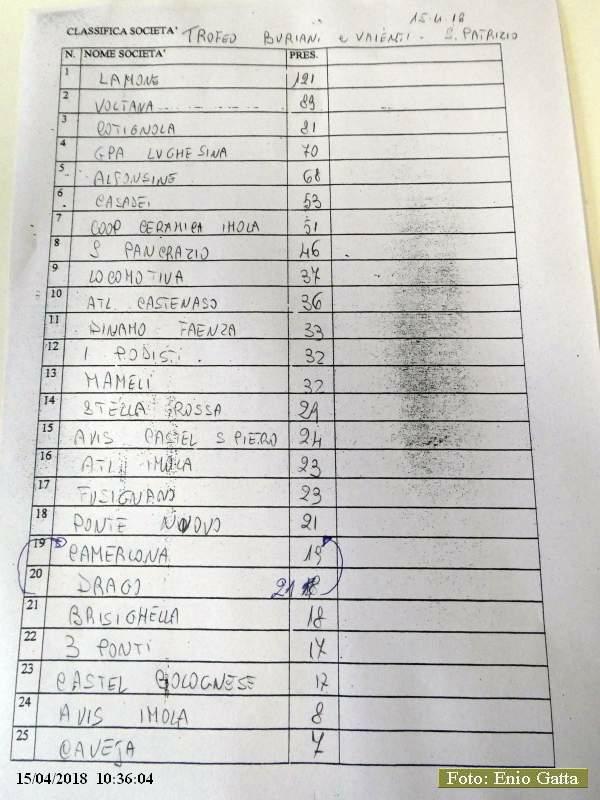 15.4.18
CLASSIFICA SOCIETA' TROFEO BURIANI e VALENTI - S. PATRIZIO
N. NOME SOCIETA' PRES.
1 LAMONE 121
2 VOLTANA 89
3 COTIGNOLA 81
4 GPA LUGHESINA 70
5 ALFONSINE 68
6 CASADEI 53
7 COOP CERAMICA IMOLA 51
8 S PANCRAZIO 46
9 LOCOMOTIVA 37
10 ATL CASTENASO 36
11 DINAMO FAENZA 33
12 I PODISTI 32
13 MAMELI 32
14 STELLA ROSSA
15 AVIS CASTEL S PIETRO 24
16 ATL IMOLA 23
17 FUSIGNANO 23
18 PONTE NUOVO 21
19 CAMERLONA 19
20 DRAGO 21
21 BRISIGHELLA 18
22 3 PONTI 17
23 CASTEL BOLOGNESE 17
24 AVIS IMOLA 8
25 CAVEJA 7
15/04/2018 10:36:04
Foto: Enio Gatta